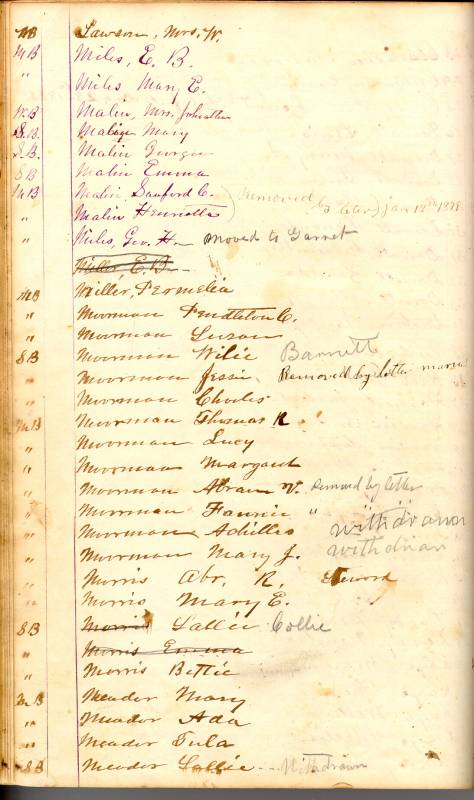 MB Lawson, Mrs. W.
MB Miles, E. B.
" Miles Mary E.
W.B Malin, Mrs. Johnathan
S.B. Mary
S.B. Malin Georgie
SB Malin Emma
MB Malin, Sanford C. ) Removed
" Malin Henrietta ) by letter) Jan 12th 1878
" Miles, Geo. H. moved to Garnet
Miller, E.B.
MB Miller, Permelia
" Moorman Pendleton C.
" Moorman Susan
SB Moorman Willie Barnett
" Moorman Jessie. Removed by letter
" Moorman Charles
MB Moorman Thomas R
" Moorman Lucy
" Moorman Margaret
" Moorman Abram V. removed by letter
" Moorman Fannie "
" Moorman Achilles withdrawn
" Moorman Mary J. withdrawn
" Morris Abr. R. Steword
" Morris Mary E.
SB Morris Sallie Collie
" Morris Emma
" Morris Bettie
MB Meador Mary
" Meador Ada
" Meador Tula
SB Meador Sallie -- Withdrawn